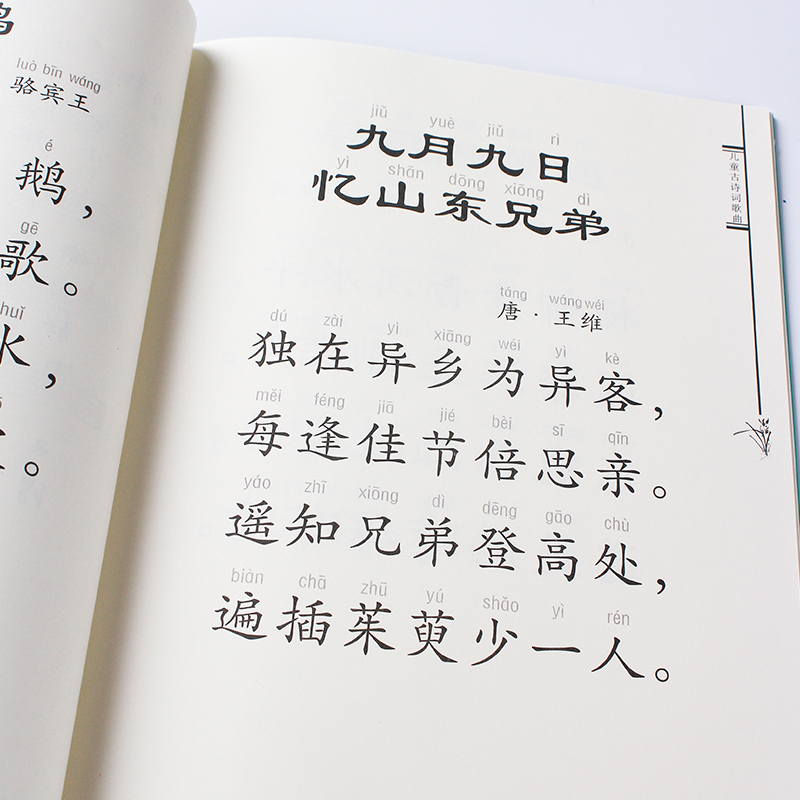 luò bīn wáng
骆宾王
é
鹅，
gē
歌。
水，
。
jiǔ yuè jiǔ rì
九月九日
yì shān dōng xiōng dì
忆山东兄弟
táng wáng wéi
唐·王维
dú zài yì xiāng wéi yì kè
独在异乡为异客，
měi féng jiā jié bèi sī qīn
每逢佳节倍思亲。
yáo zhī xiōng dì dēng gāo chù
遥知兄弟登高处，
biàn chā zhū yú shǎo yì rén
遍插茱萸少一人。
儿童古诗词歌曲